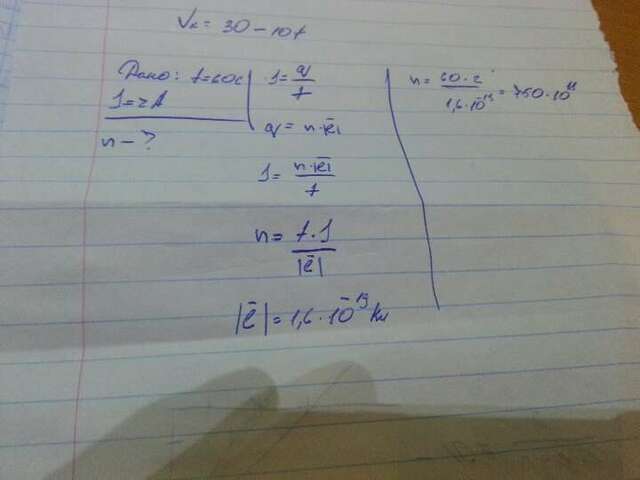 Vₓ = 30 - 10t
Дано: t=60с
I=2A
n - ?
I = q/t
q = n·|ē|
I = n·|ē|/t
n = t·I/|ē|
|ē| = 1,6·10⁻¹⁹ Кл
n = 60·2/1,6·10⁻¹⁹ = 750·10¹⁸